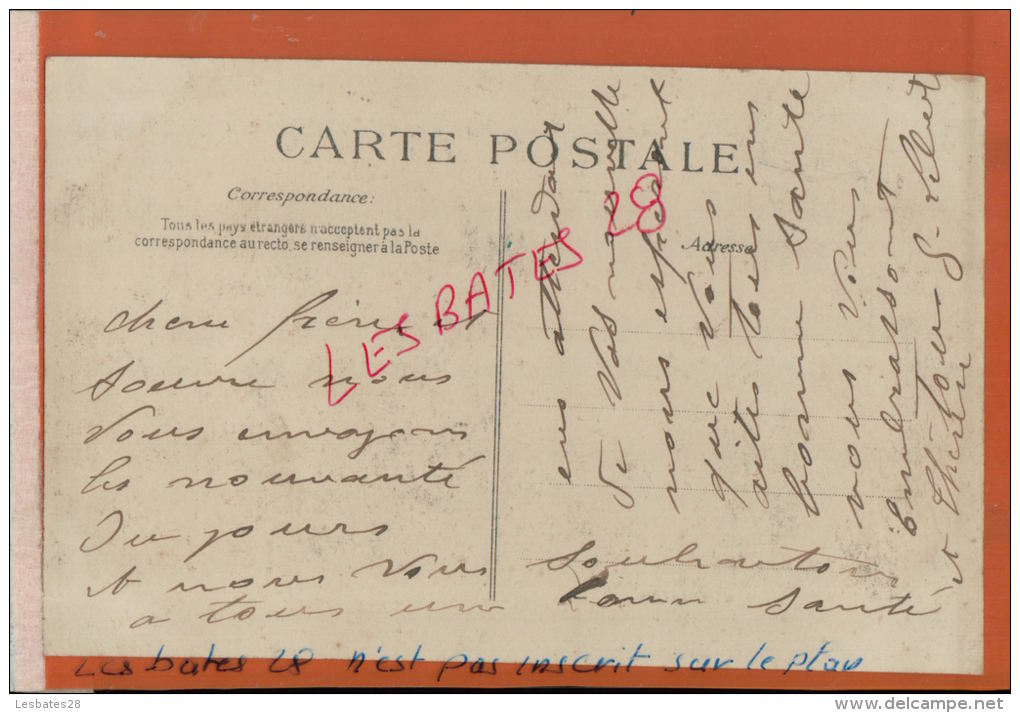 CARTE POSTALE
Correspondance:
Tous les pays étrangers n'acceptent pas la
correspondance au recto, se renseigner à la Poste
Adresse
LES BATES 28
chere frere et
soeure nous
Vous envoyons
les nouvauté
Du jours
et nous Vous
a tous une
Souhaiton
bonne Santé
en attendant
De Vos nouvelle
nous esperont
que Vous
aites tous en
bonne Sante
nous Vous
Embrassont
Les bates 28 n'est pas inscrit sur le plan
Lesbates28
www.delcampe.net